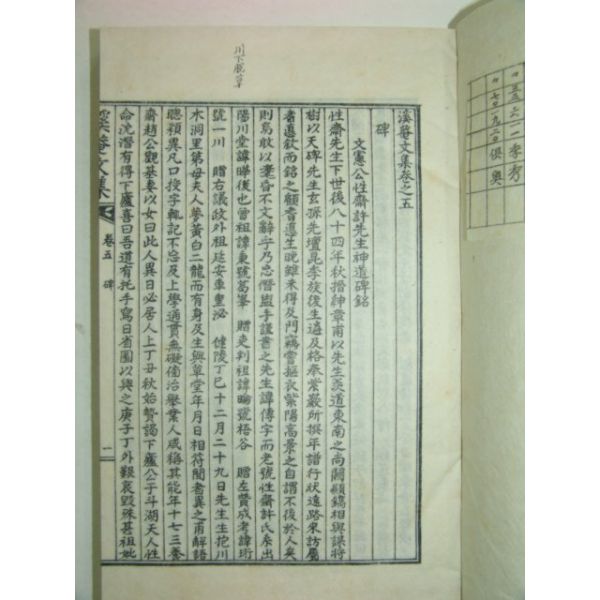 溪菴文集卷之五
碑
文憲公性齋許先生神道碑銘
性齋先生下世後八十四年秋搢紳章甫以先生羨道東南之尚闕顯鐫相與謀將
樹以天碑先生玄孫先壇昆季族後生遍及格奉紫巖所撰年譜行狀遠路來訪屬
者遑欽而銘之顧者遑生晩雖未得及門竊嘗摳衣紫陽高景之自謂不後於人矣
則烏敢以耄昏不文辭乎乃忠僭盥手謹書之先生諱傳字而老號性齋許氏系出
陽川堂諱曄後也曾祖諱東號葛峯 贈吏判祖諱晦號梧谷 贈左贊成考諱珩
號一川 贈右議政外祖延安車皇泌 健陵丁巳十二月二十九日先生生抱川
木洞里第母夫人夢黃白二龍而有身及生與草堂年月日相符聞者異之甫解語
聰穎異凡口授字輒記不忘及上學通貫無礙傍治擧業人咸稱其能年十七三養
齋趙公觀基妻以女曰此人異日必居人上丁丑秋始贄謁下廬公于斗湖天人性
命沈潛有得下廬喜曰吾道有托手寫日省圖以與之庚子丁外艱哀毁殊甚祖妣
卷五 碑
一
川下脫草
五五六 二 李秀
七七九二五 俱奧